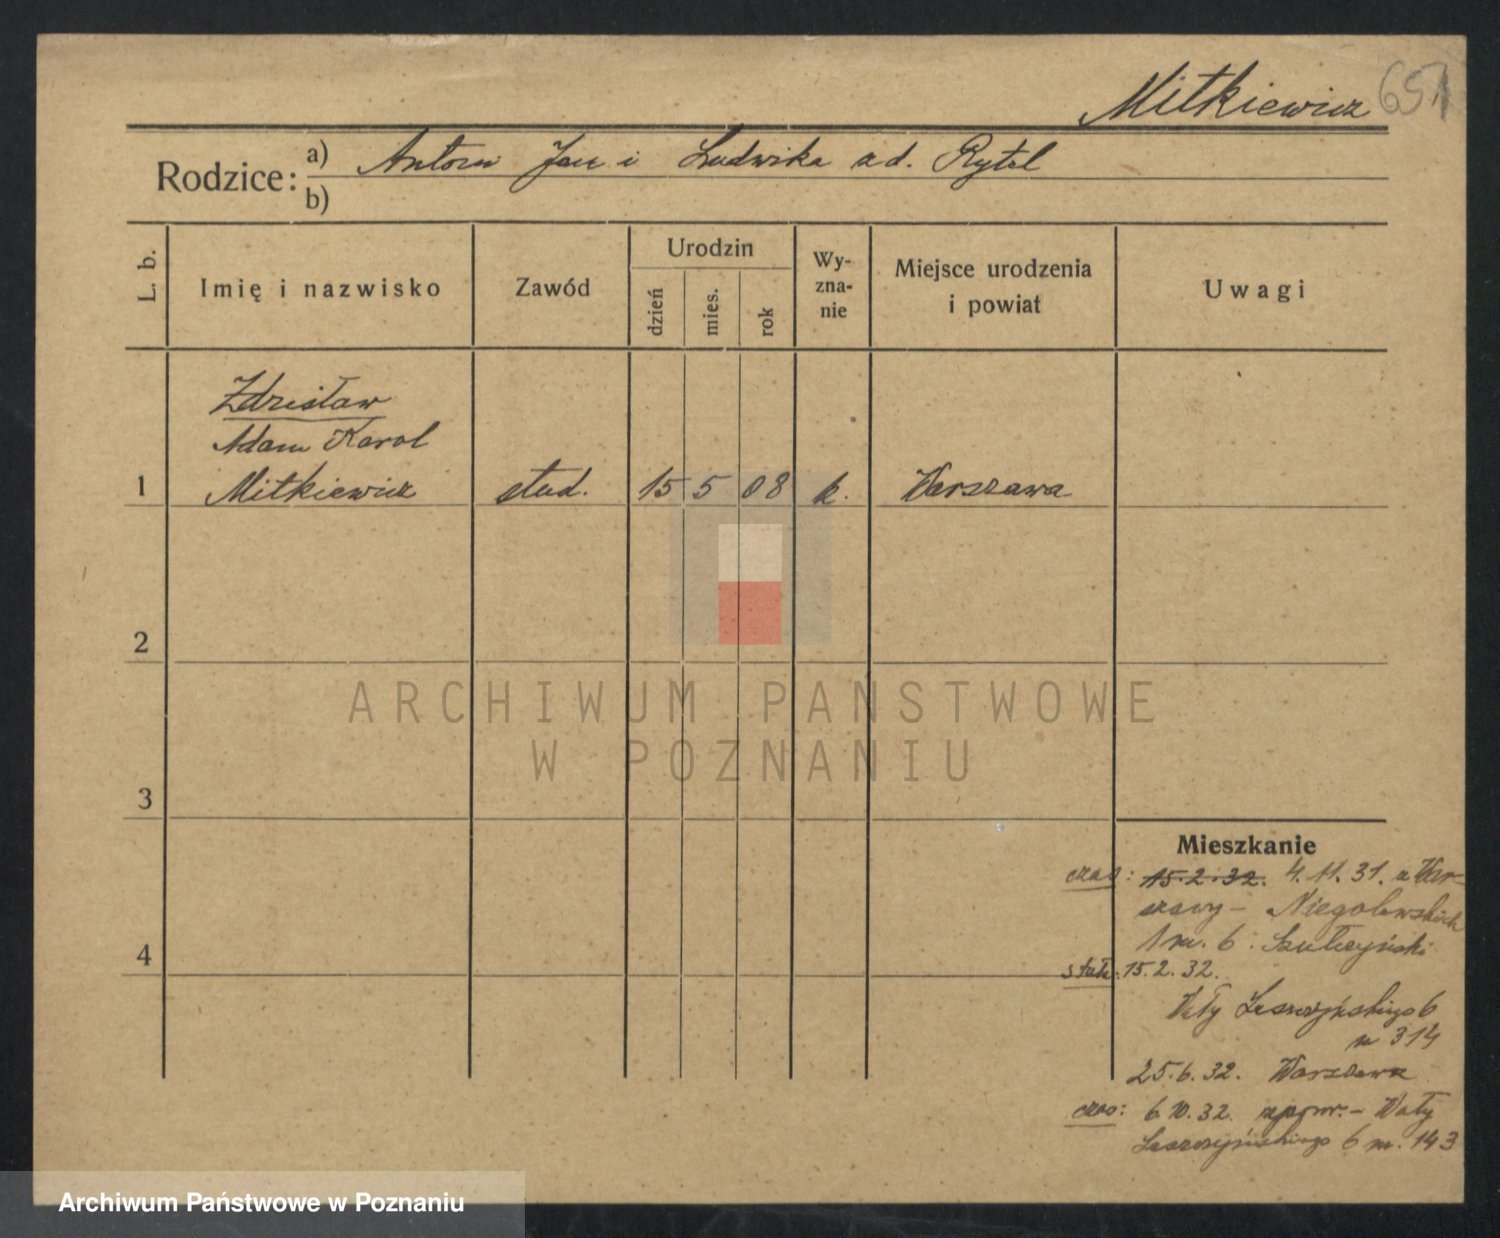 Mitkiewicz 651
Rodzice: a) Antoni Jan i Ludwika z d. Rytel
b)
L. b.
Imię i nazwisko
Zawód
Urodzin
dzień
mies.
rok
Wy-
zna-
nie
Miejsce urodzenia
i powiat
Uwagi
Zdzisław
Adam Karol
1 Mitkiewicz stud. 15 5 08 k. Warszawa
2
3
4
ARCHIWUM PAŃSTWOWE
W POZNANIU
Mieszkanie
czas: 15.2.32. 4.11.31. z War-
szawy - Niegolewskich
1 m. 6. Szułczyński
stałe: 15.2.32.
Wały Leszczyńskiego 6
m 314
25.6.32. Warszawa
czas: 6.10.32. - Wały
Leszczyńskiego 6 m. 143
Archiwum Państwowe w Poznaniu